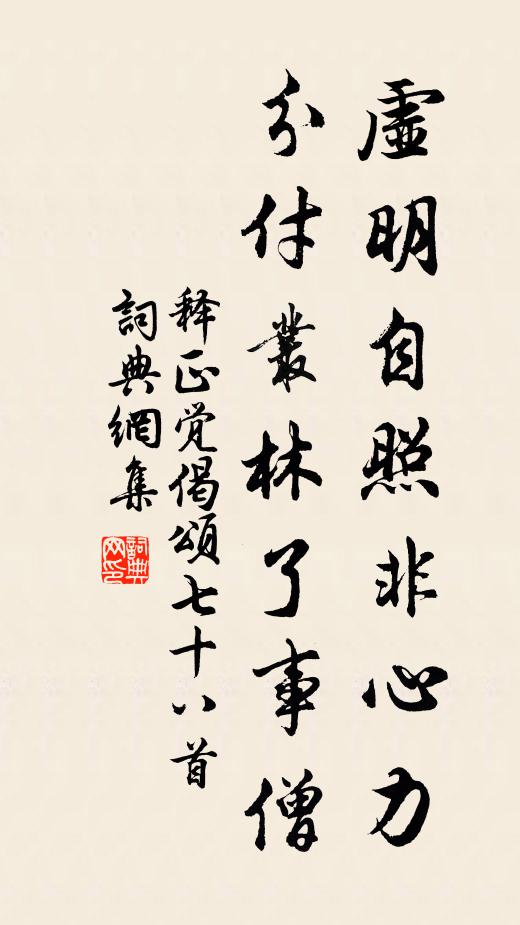 虛明自照非心力
分付叢林了事僧
释正觉偈頌七十八首
詞典網集
詞典
网印